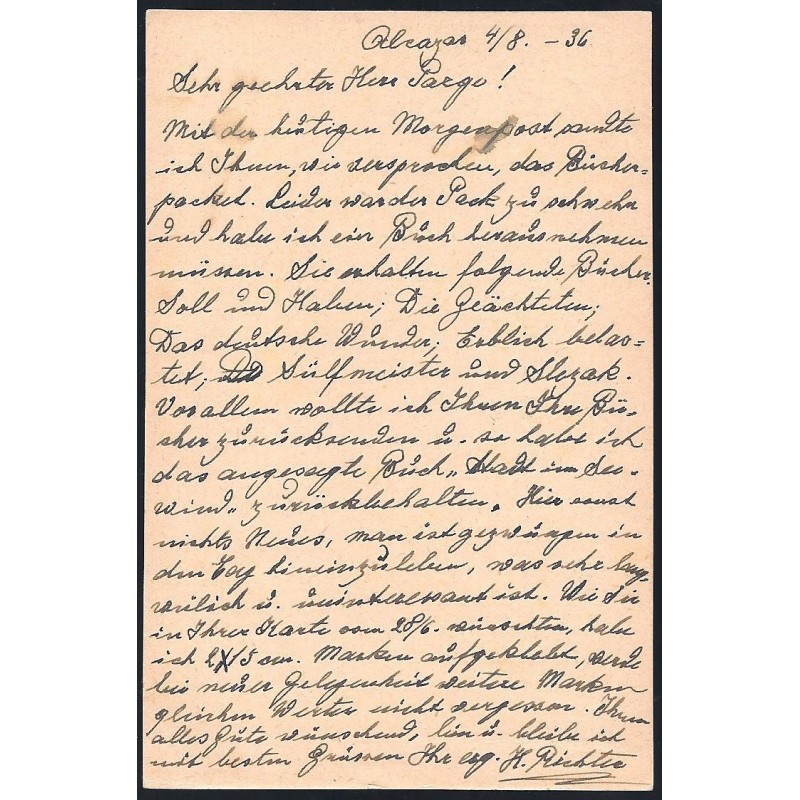 Alcazar 4/8. - 36
Sehr geehrter Herr Parge!
Mit der heutigen Morgenpost sandte
ich Ihnen, wie versprochen, das Bücher-
packet. Leider war der Pack zu schwehr
und habe ich ein Buch herausnehmen
müssen. Sie erhalten folgende Bücher:
Soll und Haben; Die Geächteten;
Das deutsche Wunder; Erblich belas-
tet; Sülfmeister und Slezak.
Vor allem wollte ich Ihnen Ihre Bü-
cher zurücksenden u. so habe ich
das angesagte Buch „Stadt im See-
wind" zurückbehalten. Hier sonst
nichts Neues, man ist gezwungen in
den Tag hineinzuleben, was sehr lang-
weilich u. uninteressant ist. Wie Sie
in Ihrer Karte vom 28/6. wünschten, habe
ich 2X15 cm. Marken aufgeklebt, werde
bei neuer Gelegenheit weitere Marken
gleichen Wertes nicht vergessen. Ihnen
alles Gute wünschend, bin u. bleibe ich
mit besten Grüssen Ihr erg. H. Richter